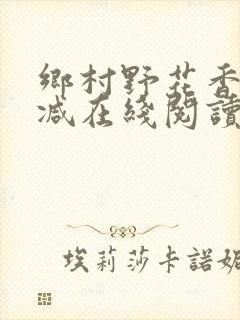 鄉村野花香
減在綫閱讀
埃莉莎卡諾妮